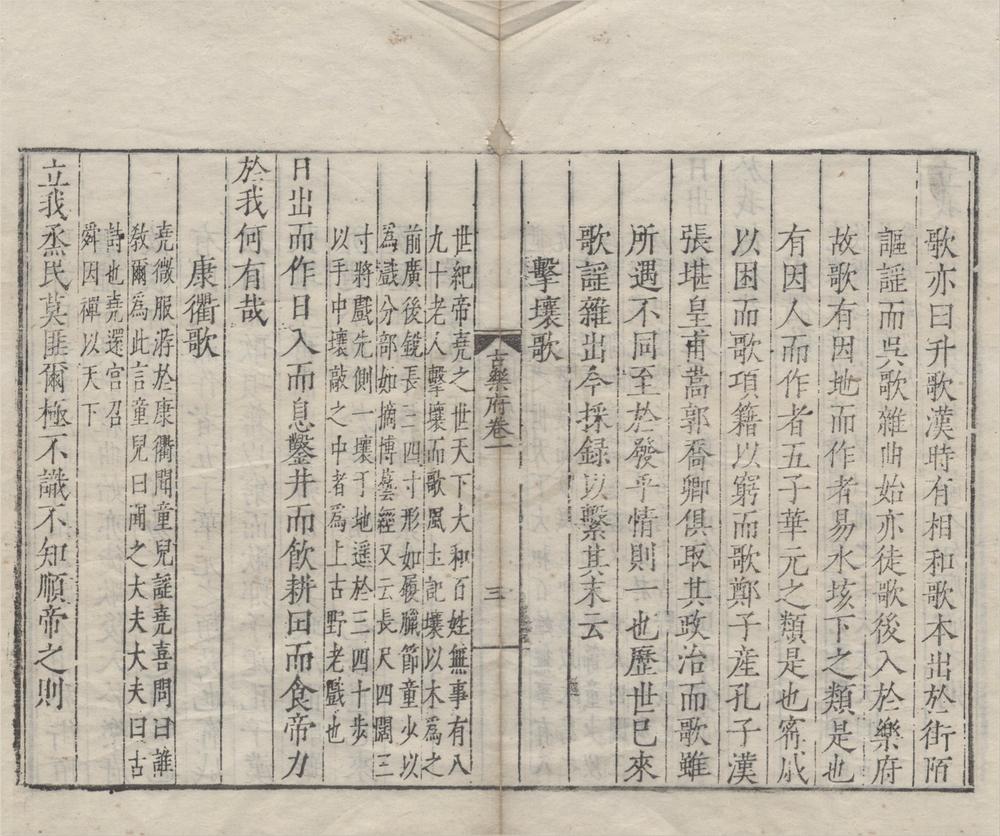 歌亦曰升歌漢時有相和歌本出於街陌
謳謡而吳歌雜曲始亦徒歌後入於樂府
故歌有因地而作者易水垓下之類是也
有因人而作者五子華元之類是也甯戚
以困而歌項籍以窮而歌鄭子産孔子漢
張堪皇甫嵩郭喬卿俱取其政治而歌雖
所遇不同至於發乎情則一也歷世已來
歌謡雜出今採録以繫其末云
擊壤歌
古樂府卷一
三
世紀帝堯之世天下大和百姓無事有八
九十老人擊壤而歌風土記壤以木爲之
前廣後銳長三四寸形如履臘節童少以
爲戲分部如摘博藝經又云長尺四闊三
寸將戲先側一壤于地遥於三四十步
以手中壤敲之中者爲上古野老戲也
日出而作日入而息鑿井而飲耕田而食帝力
於我何有哉
康衢歌
堯微服游於康衢聞童兒謡堯喜問曰誰
敎爾爲此言童兒曰聞之大夫大夫曰古
詩也堯還宫召
舜因禪以天下
立我烝民莫匪爾極不識不知順帝之則